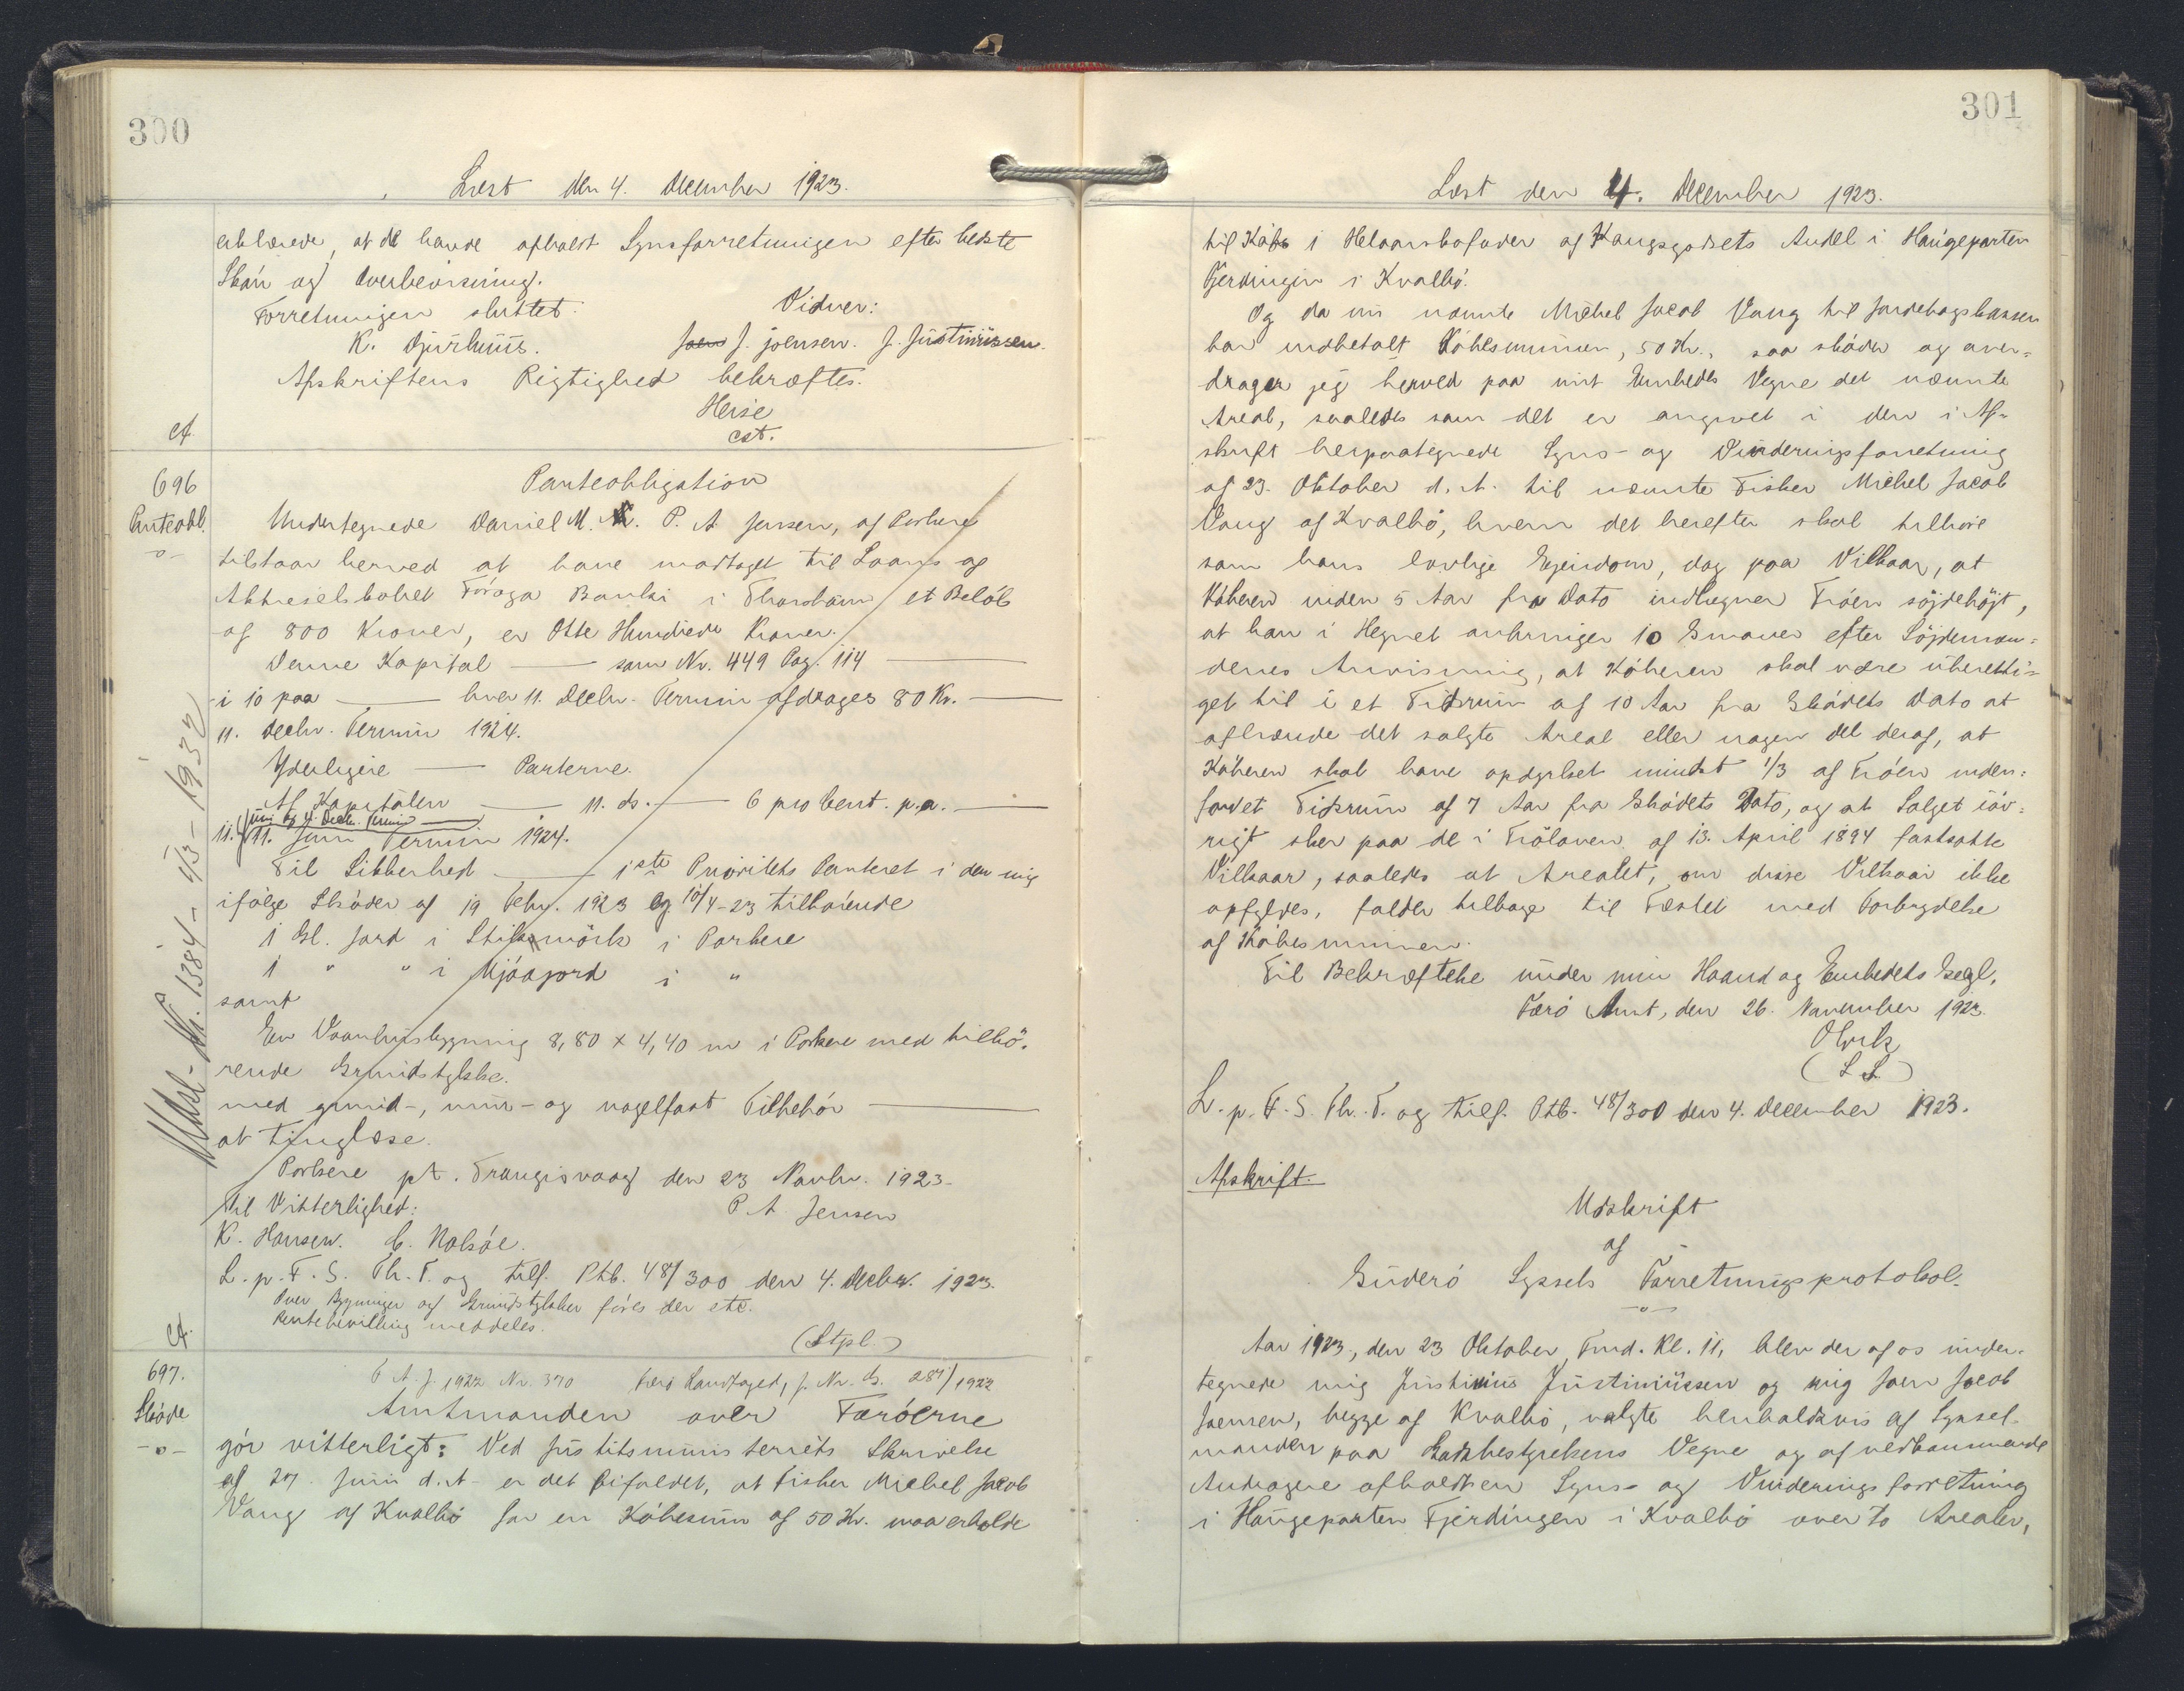 300
Læst den 4. December 1923.
erklærede, at de havde afholdt Synsforretningen efter bedste
Skön og Overbevisning.
Forretningen sluttet.
Vidner:
K. Djurhuus.
Joen J. Joensen. J. Justinussen.
Afskriftens Rigtighed bekræftes.
Heise
cst.
Cf.
696
Panteobl.
-o-
Panteobligation
Undertegnede Daniel M. P. A. Jensen, af Porkere
tilstaar herved at have modtaget til Laans af
Aktieselskabet Föroya Banki i Thorshavn et Belöb
af 800 Kroner, er Otte Hundrede Kroner.
Denne Kapital — som Nr. 449 Pag. 114 —
i 10 paa — hver 11. Decbr. Termin afdrages 80 Kr. —
11. Decbr. Termin 1924.
Yderligere — Parterne.
Af Kapitalen — 11. ds. — 6 pro Cent. p.a. —
Juni og 11. Decb. Termin —
11. 11. Juni Termin 1924.
Til Sikkerhed — 1ste Prioritets Panteret i den mig
ifölge Skøder af 19 Febr. 1923 og 10/4-23 tilhörende
1 Gl. Jord i Porkere
1 " " i Mjóajord i "
samt
En Vaanhusbygning 8,80 x 4,40 m i Porkere med tilhö-
rende Grundstykke.
med grund-, mur- og nagelfast Tilbehör —
at tinglæse.
Porkere pt. Trangisvaag den 23 Novbr. 1923.
Til Vitterlighed:
P. A. Jensen
K. Hansen. C. Nolsöe.
L. p. F. S. Th. T. og tilf. Ptb. 48/300 den 4. Decbr. 1923.
Over Bygninger og Grundstykker föres der etc.
Rentebevilling meddeles.
(Stpl.)
Cf.
Udsl. Nr. 1384 - 4/3 - 1932
697.
Sköde
-o-
F. A. J. 1922 Nr. 370 Færö Landfoged, J. Nr. G. 287/1922
Amtmanden over Færöerne
gör vitterligt: Ved Justitsministeriets Skrivelse
af 27. Juni d.A. er det bifaldet, at Fisker Michel Jacob
Vang af Kvalbö for en Köbesum af 50 Kr. maa erholde
301
Læst den 4. December 1923.
til Köbs i Helaarskofoder af Kongsgodsets Andel i Haugeparten
Fjerdingen i Kvalbö.
Og da nu nævnte Michel Jacob Vang til Jordebogskassen
har indbetalt Köbesummen, 50 Kr., saa sköder og over-
drager jeg herved paa mit Embeds Vegne det nævnte
Areal, saaledes som det er angivet i den i Af-
skrift herpaategnede Syns- og Vurderingsforretning
af 23. Oktober d. A. til nævnte Fisker Michel Jacob
Vang af Kvalbö, hvem det herefter skal tilhöre
som hans lovlige Ejendom, dog paa Vilkaar, at
Köberen inden 5 Aar fra Dato indhegner Tröen söjdehöjt,
at han i Hegnet anbringer 10 Smauer efter Söjdemæn-
denes Anvisning, at Köberen skal være uberetti-
get til i et Tidsrum af 10 Aar fra Skødets Dato at
afhænde det solgte Areal eller nogen Del deraf, at
Köberen skal have opdyrket mindst 1/3 af Tröen inden-
for et Tidsrum af 7 Aar fra Skødets Dato, og at Salget iöv-
rigt sker paa de i Tröloven af 13. April 1894 fastsatte
Vilkaar, saaledes at Arealet, om disse Vilkaar ikke
opfyldes, falder tilbage til Fæstet med Fortabelse
af Köbesummen.
Til Bekræftelse under min Haand og Embedets Segl.
Færö Amt, den 26. November 1923.
Olrik
(L. S.)
L. p. F. S. Th. T. og tilf. Ptb. 48/300 den 4. December 1923.
Afskrift.
Udskrift
af
Suderö Syssels Forretningsprotokol.
-o-
Aar 1923, den 23 Oktober, Fmd. Kl. 11, blev der af os under-
tegnede mig Justinus Justinussen og mig Joen Jacob
Joensen, begge af Kvalbö, valgte henholdsvis af Syssel-
manden paa Godsbestyrelsens Vegne og af vedkommende
Andragere afholdt en Syns- og Vurderingsforretning
i Haugeparten Fjerdingen i Kvalbö over to Arealer,